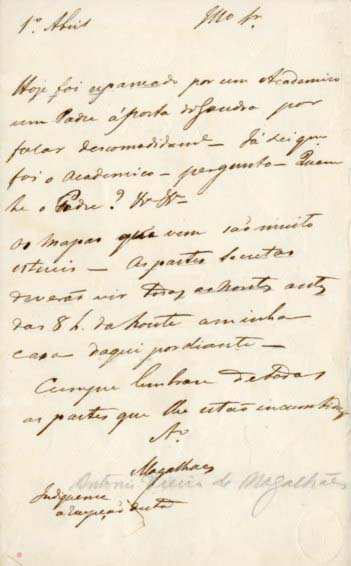 1º Abril Illmo Sr.
Hoje foi espancado por um Academico
um Padre á porta do Sandra por
falar descomedidamte – Já sei que
foi o Academico – pergunto – Quem
he o Padre? &c &c
Os mapas que vem são muito
esteris – As partes Secretas
deverão vir todas as noutes antes
das 8 h. da noute a minha
casa daqui por diante –
Cumpre lembrar de todas
as partes que lhe estão incumbidas
Magalhães
Antonio Vieira de Magalhães